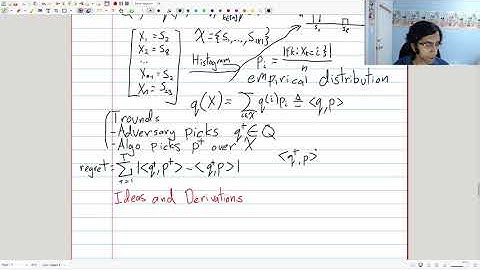 X₁ = S₂
X₂ = S₈
...
Xₙ₋₁ = S₂
Xₙ = S₂₃
X = {S₁,...,S|X|}
Histogram
pᵢ = |{k: Xₖ = i}| / n
empirical distribution
q(X) = Σ q(i)pᵢ ≜ <q,p>
i∈X
T rounds
-Adversary picks qᵗ ∈ Q
-Algo picks pᵗ over X
regret= Σ |<qᵗ,pᵗ> - <qᵗ,p>|
t=1
<qᵗ,p>
Ideas and Derivations